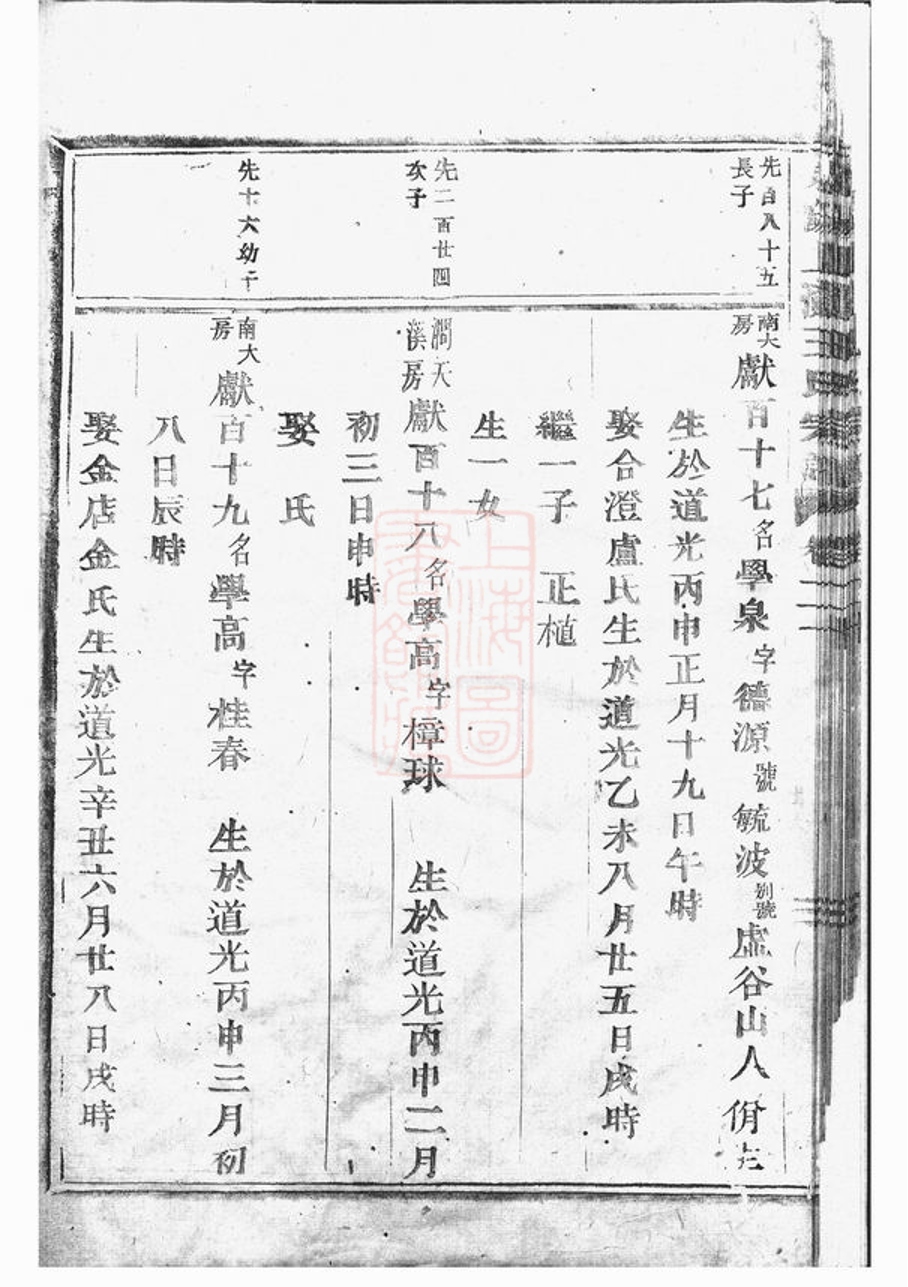 先百八十五
長子
南大
房
獻百十七名學泉字德源號毓波別號虛谷山人佾生
生於道光丙申正月十九日午時
娶合澄盧氏生於道光乙未八月廿五日戌時
繼一子 正植
生一女
先二百廿四
次子
澗天
溪房
獻百十八名學高字樟球 生於道光丙申二月
初三日申時
娶 氏
先十六幼子
南大
房
獻百十九名學高字桂春 生於道光丙申三月初
八日辰時
娶金店金氏生於道光辛丑六月廿八日戌時
上海圖